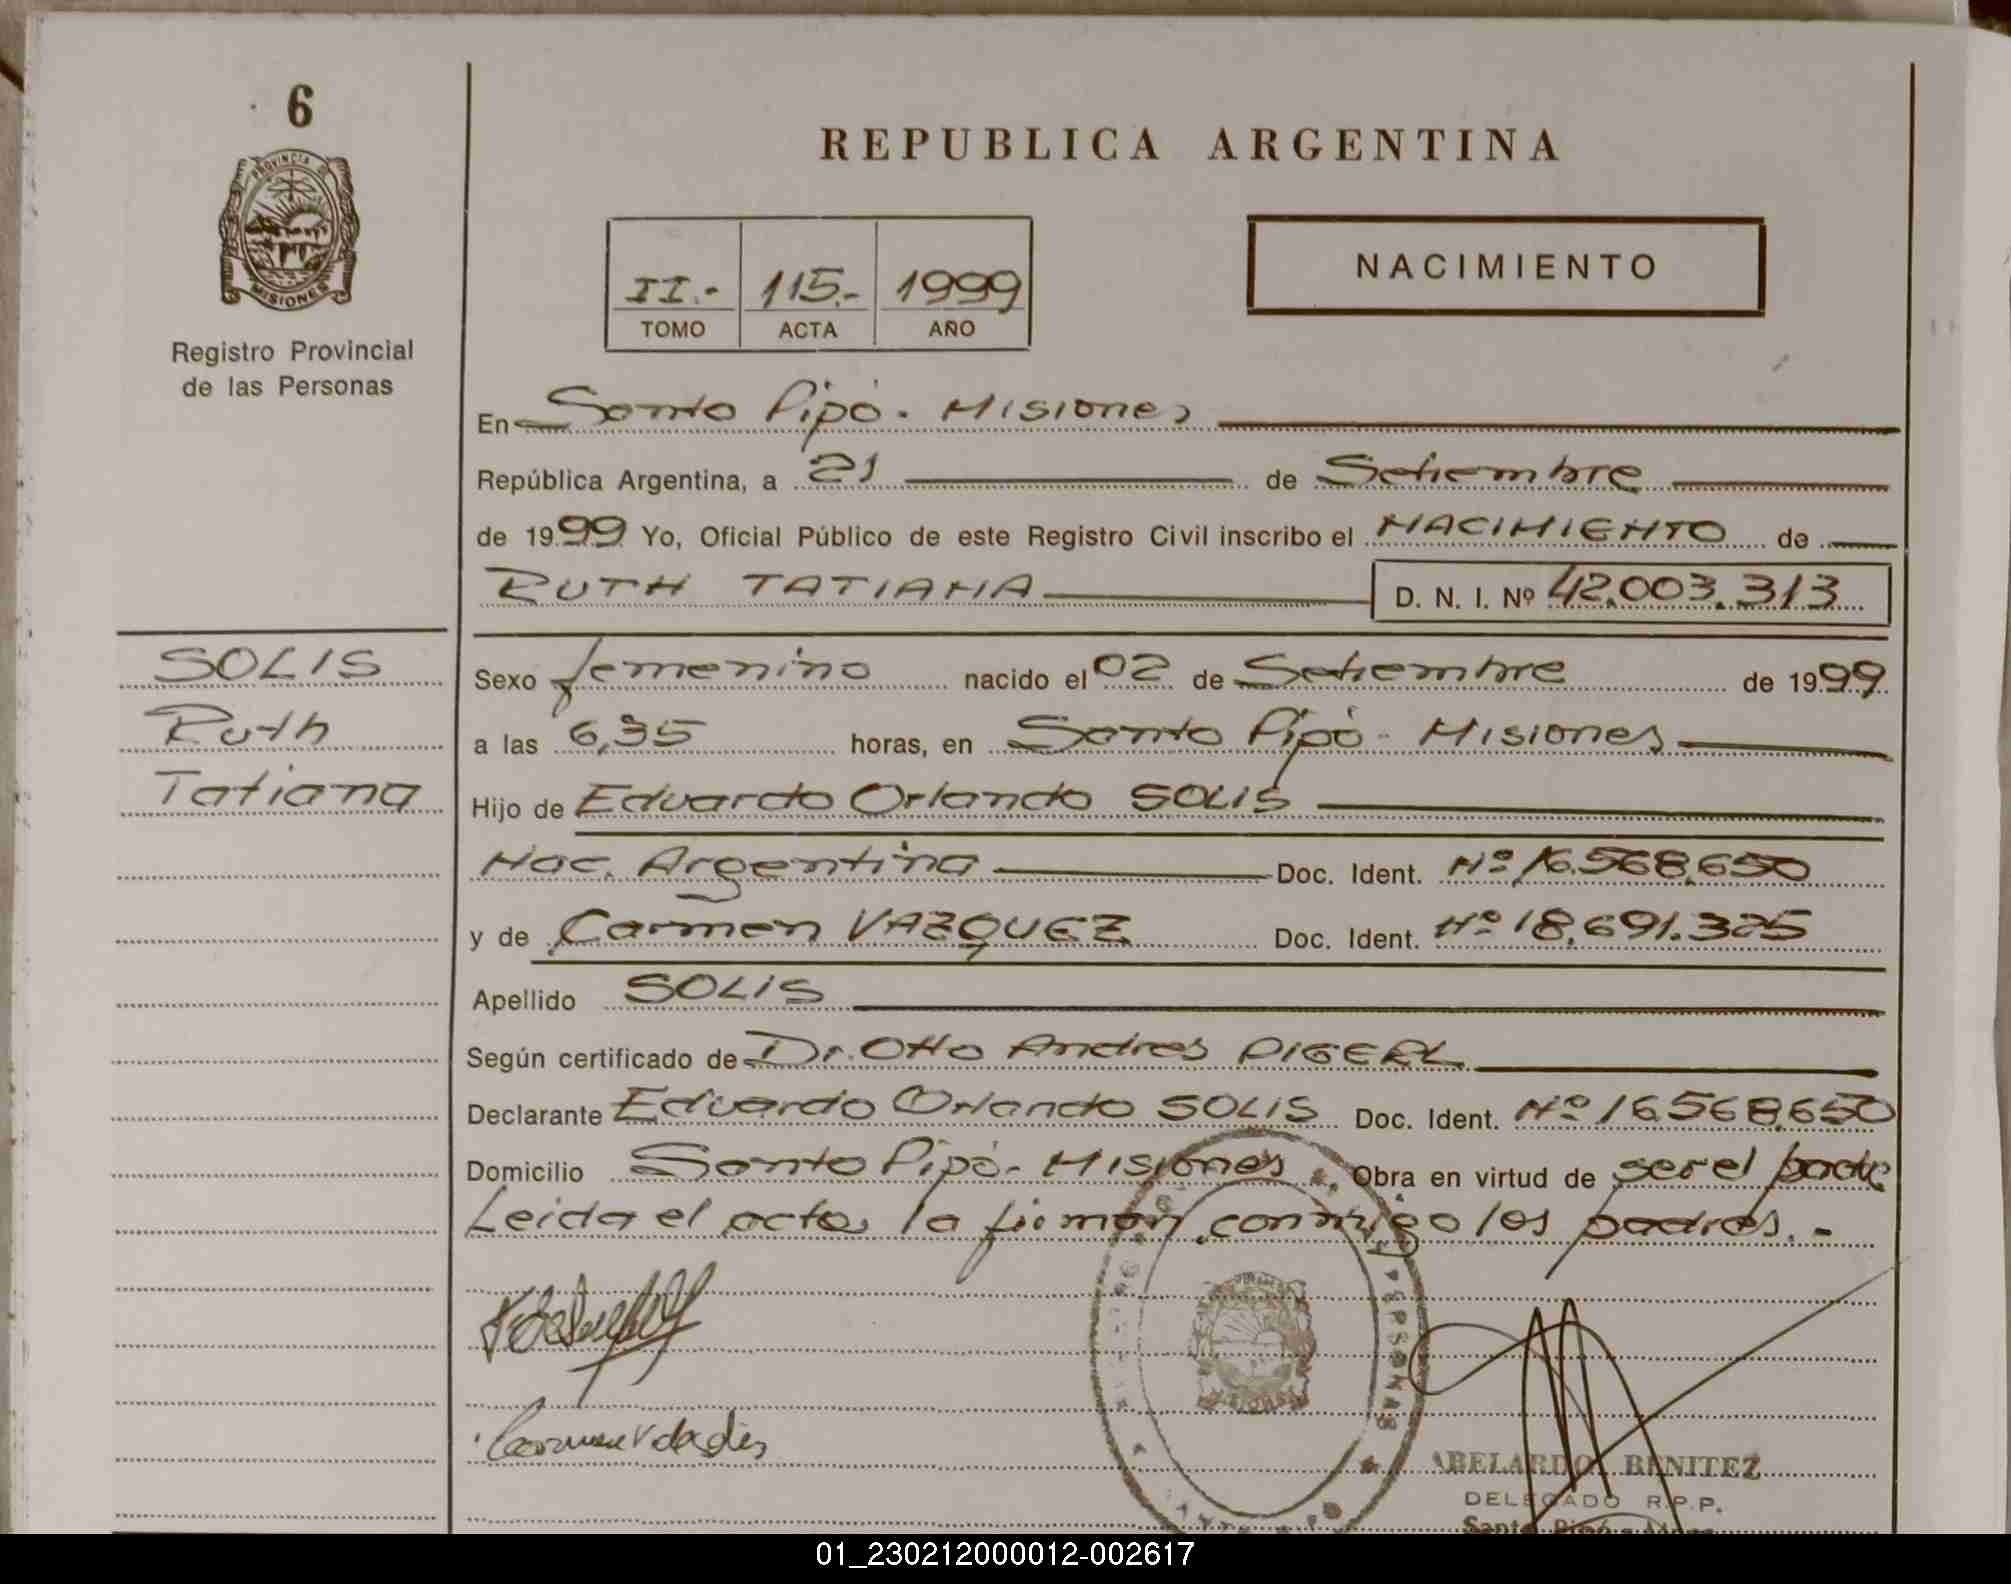 6
PROVINCIA
MISIONES
Registro Provincial
de las Personas
REPUBLICA ARGENTINA
II.- 115.- 1999
TOMO ACTA AÑO
NACIMIENTO
En Santo Pipó. Misiones
República Argentina, a 21 de Setiembre
de 1999 Yo, Oficial Público de este Registro Civil inscribo el NACIMIENTO de
RUTH TATIANA D. N. I. Nº 42.003.313
SOLIS
Ruth
Tatiana
Sexo femenino nacido el 02 de Setiembre de 1999
a las 6,35 horas, en Santo Pipó - Misiones
Hijo de Eduardo Orlando SOLIS
Nac. Argentina Doc. Ident. Nº 16.568.650
y de Carmen VAZQUEZ Doc. Ident. Nº 18.691.325
Apellido SOLIS
Según certificado de Dr. Otto Andres
Declarante Eduardo Orlando SOLIS Doc. Ident. Nº 16.568.650
Domicilio Santo Pipó - Misiones Obra en virtud de ser el padre
Leida el acta, la firman conmigo los padres.-
PERSONAS
ABELARDO BENITEZ
DELEGADO R.P.P.
Santo Pipó - Mnes.
01_230212000012-002617